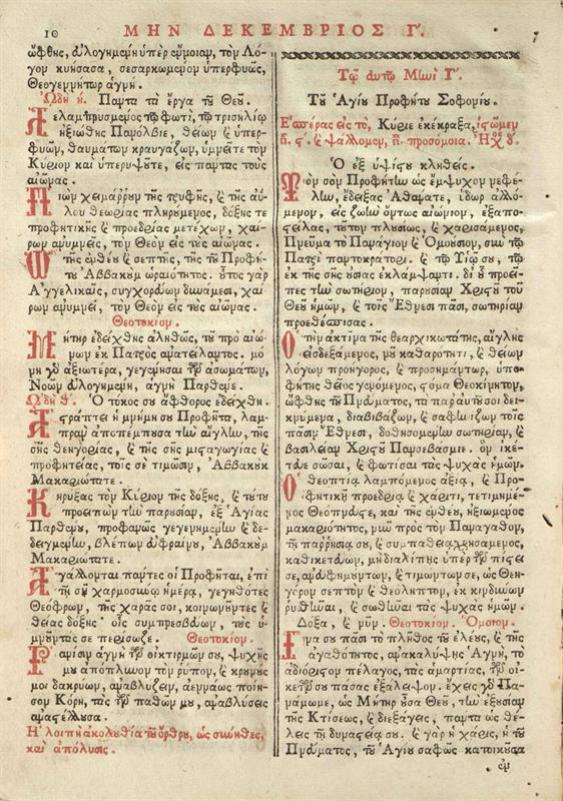 ΜΗΝ ΔΕΚΕΜΒΡΙΟΣ Γ΄.
ὤφθης, εὐλογημένη ὑπὲρ ἔννοιαν, τὸν Λό-
γον κυήσασα, σεσαρκωμένον ὑπερφυῶς,
Θεογεννῆτορ ἁγνή.
ᾨδὴ η΄. Πάντα τὰ ἔργα τοῦ Θεοῦ.
Λελαμπρυσμένος τῷ φωτί, τῷ τρισηλίῳ
ἠξιώθης Πανόλβιε, θείων καὶ ὑπερ-
φυῶν, θαυμάτων κραυγάζων, ὑμνεῖτε τὸν
Κύριον καὶ ὑπερυψοῦτε, εἰς πάντας τοὺς
αἰῶνας.
Πιὼν χειμάρρουν τῆς τρυφῆς, καὶ τῆς ἀΰ-
λου θεωρίας πληρούμενος, δόξης τε
προφητικῆς καὶ προεδρίας μετέχων, χαί-
ρων ἀνυμνεῖς, τὸν Θεὸν εἰς τοὺς αἰῶνας.
Ὢ τῆς ἐνθέου καὶ σεπτῆς, τῆς τοῦ Προφή-
του Ἀββακοὺμ ὡραιότητος. οὗτος γὰρ
Ἀγγελικαῖς, συγχορεύων δυνάμεσι, χαί
ρων ἀνυμνεῖ, τὸν Θεὸν εἰς τοὺς αἰῶνας.
Θεοτοκίον.
Μήτηρ ἐδείχθης ἀληθῶς, τοῦ πρὸ αἰώ-
νων ἐκ Πατρὸς ἀνατείλαντος. μό
νη γὰρ ἀξιωτέρα, γεγένησαι τῶν ἀσωμάτων,
Νοῶν εὐλογημένη, ἁγνὴ Παρθένε.
ᾨδὴ θ΄. Ὁ τόκος σου ἄφθορος ἐδείχθη.
Ἀστράπτει ἡ μνήμη σου Προφῆτα, λαμ-
πρὰν ἀποπέμπουσα τὴν αἴγλην, τῆς
σῆς θεηγορίας, καὶ τῆς σῆς μυσταγωγίας καὶ
προφητείας, τοῖς σὲ τιμῶσιν, Ἀββακοὺκ
Μακαριώτατε.
Κηρύξας τὸν Κύριον τῆς δόξης, καὶ τούτου
προειπὼν τὴν παρουσίαν, ἐξ Ἁγίας
Παρθένου, προφανῶς γεγενημένην καὶ δε-
δειγμένην, βλέπων εὐφραίνου, Ἀββακοὺμ
Μακαριώτατε.
Ἀγάλλονται πάντες οἱ Προφῆται, ἐπὶ
τῇ σῇ χαρμοσύνῳ ἡμέρᾳ, γεγηθότες
Θεόφρον, τῆς χαρᾶς σοι, κοινωνοῦντες καὶ
θείας δόξης· οἷς συμπρεσβεύων, τοὺς ὑ-
μνοῦντάς σε περίσωζε. Θεοτοκίον.
Ῥανίσιν ἁγνὴ τῶν οἰκτιρμῶν σου, ψυχῆς
μου ἀπόπλυνον τὸν ῥύπον, καὶ κρουνούς
μοι δακρύων, ἀναβλύζειν, ἀεννάως ποίη-
σον Κόρη, τὰς τῶν παθῶν μου, ἀναβλύσεις
ἀναστέλλουσα.
Ἡ λοιπὴ ἀκολουθία τοῦ ὄρθρου, ὡς σύνηθες,
καὶ ἀπόλυσις.
Τῷ αὐτῷ Μηνὶ Γ΄.
Τοῦ Ἁγίου Προφήτου Σοφονίου.
Ἑσπέρας εἰς τό, Κύριε ἐκέκραξα, ἱστῶμεν
στ. ς΄. καὶ ψάλλομεν, στ. προσόμοια. Ἦχος δ΄.
Ὁ ἐξ ὑψίστου κληθείς.
Τὸν σὸν Προφήτην ὡς ἔμψυχον νεφέ-
λην, ἔδειξας Ἀθάνατε, ὕδωρ ἁλλό-
μενον, εἰς ζωὴν ὄντως αἰώνιον, ἐξαπο-
στείλας, τούτον πλουσίως, καὶ χαρισάμενος,
Πνεῦμα τὸ Πανάγιον καὶ Ὁμοούσιον, σοὶ τῷ
Πατρὶ παντοκράτορι. καὶ τῷ Υἱῷ σου, τῷ
ἐκ τῆς σῆς οὐσίας ἐκλάμψαντι. δι' οὗ προεῖ-
πες τὴν σωτήριον, παρουσίαν Χριστοῦ τοῦ
Θεοῦ ἡμῶν, καὶ τοῖς Ἔθνεσι πᾶσι, σωτηρίαν
προεθέσπισας.
Ὁ τὴν ἀκτῖνα τῆς θεαρχικωτάτης, αἴγλης
εἰσδεξάμενος, νοῦ καθαρότητι, καὶ θείων
λόγων προήγορος, καὶ προσημάντωρ, ὑπο-
φήτης θεῖος γενόμενος, στόμα Θεοκίνητον,
ὤφθης τοῦ Πνεύματος, τὰ παρ' αὐτοῦ σοι δει-
κνύμενα, διαβιβάζων, καὶ σαφηνίζων τοῖς
πᾶσιν Ἔθνεσι, δοθησομένην σωτηρίαν, καὶ
βασιλείαν Χριστοῦ Πανσεβάσμιε. ὃν ἱκέ-
τευε σῶσαι, καὶ φωτίσαι τὰς ψυχὰς ἡμῶν.
Ὁ θεοπτίᾳ λαμπόμενος ἀξίᾳ, καὶ Προ-
φητικῇ προεδρίᾳ καὶ χάριτι, τετιμημέ-
νος Θεόπνευστε, καὶ τῆς ἐνθέου, ἠξιωμένος
μακαριότητος, νῦν πρὸς τὸν Πανάγαθον,
τῇ παρρησίᾳ σου, καὶ συμπαθείᾳ χρησάμενος,
καθικετεύων, μὴ διαλίπῃς ὑπὲρ τῶν πίστει
σε, ἀνευφημούντων, καὶ τιμώντων σε, ὡς Θεη-
γόρον σεπτὸν καὶ θεόληπτον, ἐκ κινδύνων
ῥυσθῆναι, καὶ σωθῆναι τὰς ψυχὰς ἡμῶν.
Δόξα, καὶ νῦν. Θεοτοκίον. Ὅμοιον.
Ἵνα σου πᾶσι τὸ πλῆθος τοῦ ἐλέους, καὶ τῆς
ἀγαθότητος, ἀνακαλύψῃς Ἁγνή, τὸ
ἀδιόριστον πέλαγος, τὰς ἁμαρτίας, τῶν οἰ-
κετῶν σου πάσας ἐξάλειψον. ἔχεις γὰρ Πα-
νάμωμε, ὡς Μήτηρ οὖσα Θεοῦ, τὴν ἐξουσίαν
τῆς Κτίσεως, καὶ διεξάγεις, πάντα ὡς θέ-
λεις τῇ δυναστείᾳ σου. καὶ γὰρ ἡ χάρις, ἡ τοῦ
Πνεύματος, τοῦ Ἁγίου σαφῶς κατοικοῦσα
ἐν